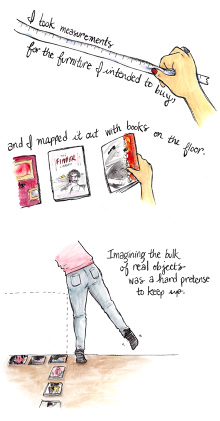 I took measurements
for the furniture I intended to buy,
and I mapped it out with books on the floor.
Imagining the bulk
of real objects
was a hard pretense
to keep up.